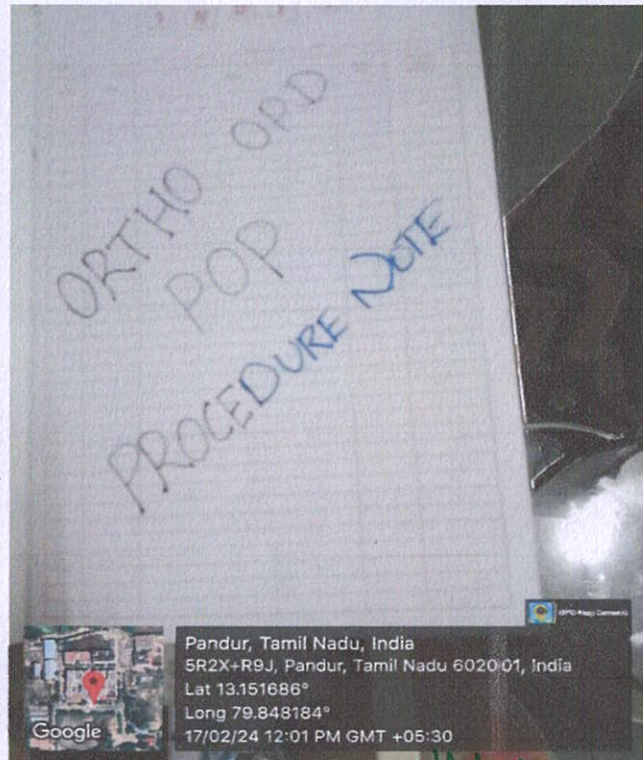 ORTHO OPD
POP
PROCEDURE NOTE
GPS Map Camera
Pandur, Tamil Nadu, India
5R2X+R9J, Pandur, Tamil Nadu 602001, India
Lat 13.151686°
Long 79.848184°
17/02/24 12:01 PM GMT +05:30
Google